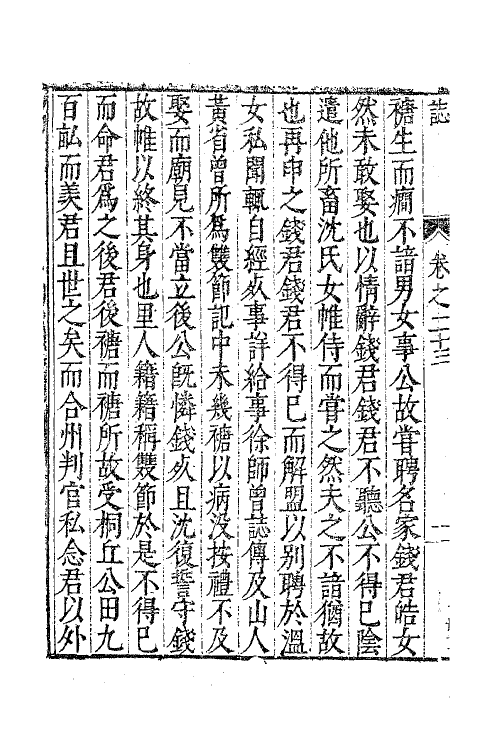 誌　卷之二十三
禟生而癎不諳男女事公故嘗聘名家錢君皓女
然未敢娶也以情辭錢君錢君不聽公不得已陰
遣他所畜沈氏女帷侍而嘗之然夫之不諳猶故
也再申之錢君錢君不得已而解盟以别聘於溫
女私聞輒自經死事詳給事徐師曾誌傳及山人
黃省曾所爲雙節記中未幾禟以病没按禮不及
娶而廟見不當立後公旣憐錢死且沈復誓守錢
故帷以終其身也里人籍籍稱雙節於是不得已
而命君爲之後君後禟而禟所故受桐丘公田九
百畝而羡君且世之矣而合州判官私念君以外